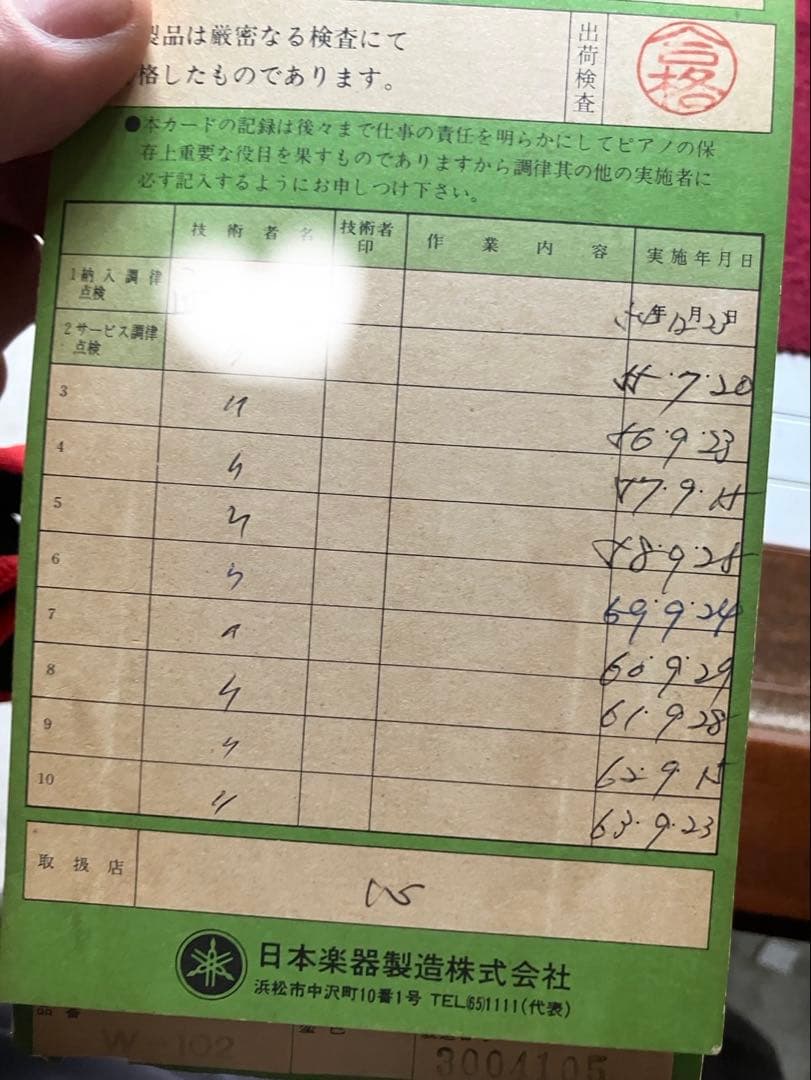 製品は厳密なる検査にて
格したものであります。
出荷検査
合格
●本カードの記録は後々まで仕事の責任を明らかにしてピアノの保
存上重要な役目を果すものでありますから調律其の他の実施者に
必ず記入するようにお申しつけ下さい。
技術者名 技術者印 作業内容 実施年月日
1納入調律点検 年12月23日
2サービス調律点検 7・20
3 〃 56・9・23
4 〃 57・9・15
5 〃 58・9・28
6 〃 59・9・24
7 〃 60・9・29
8 〃 61・9・28
9 〃 62・9・15
10 〃 63・9・23
取扱店
日本楽器製造株式会社
浜松市中沢町10番1号 TEL(65)1111(代表)
品番
W-102
3004105